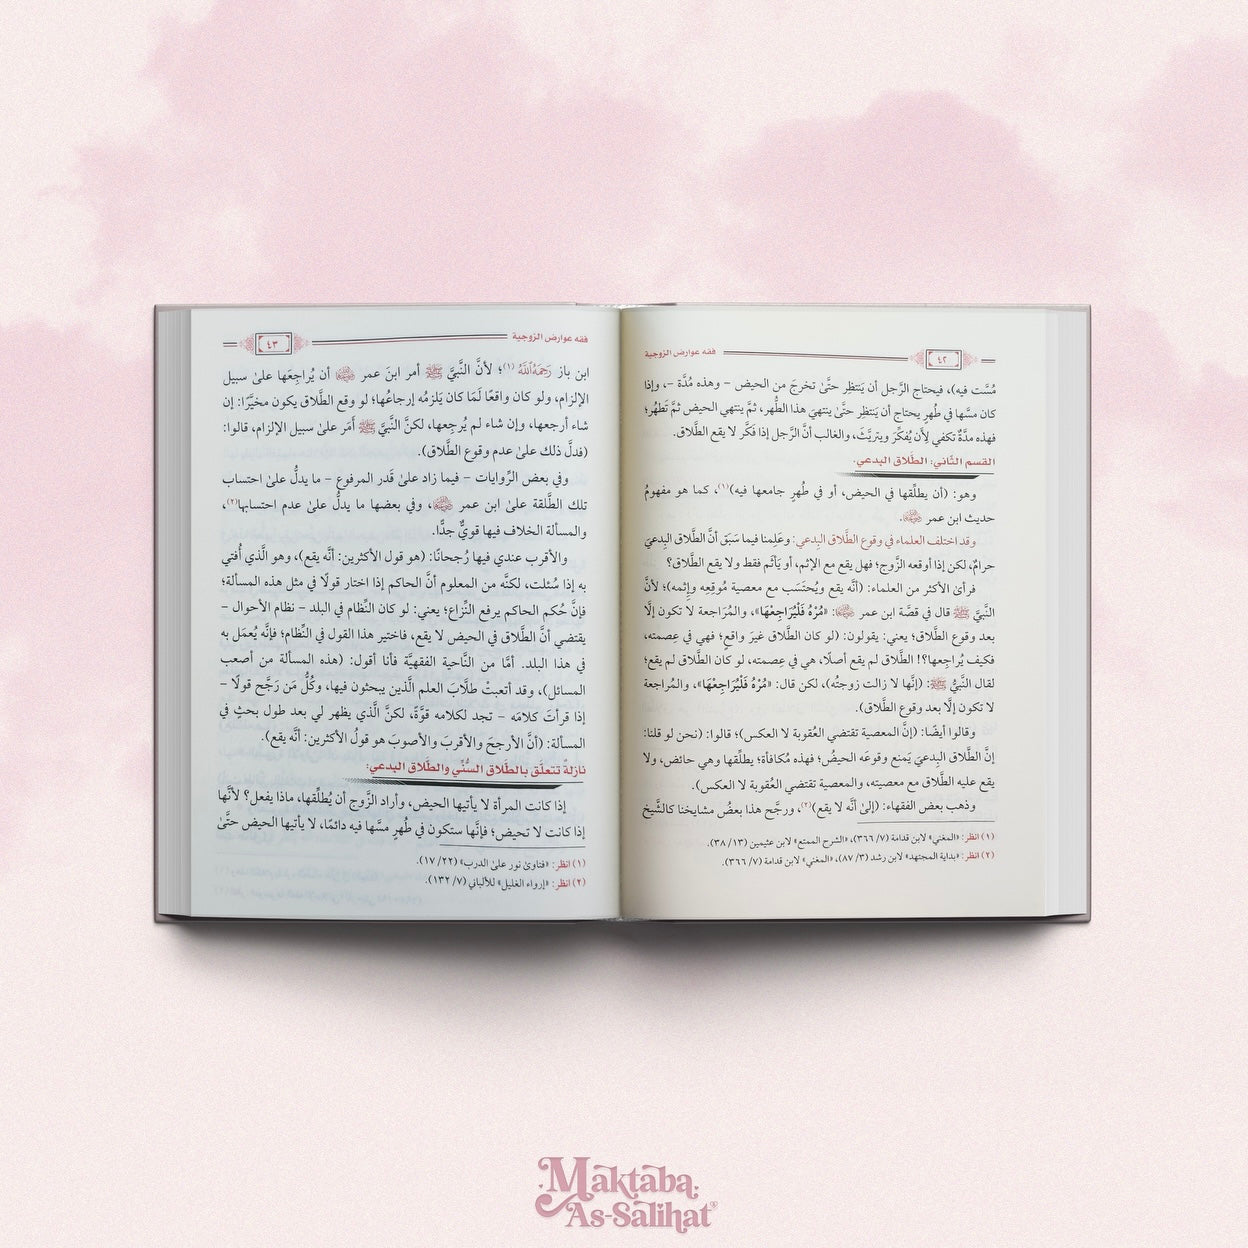 فقه عوارض الزوجية
٤٢
مُسَّت فيه)، فيحتاج الرَّجل أن يَنتَظِر حتَّىٰ تخرجَ من الحيض – وهذه مُدَّة –، وإذا
كان مسَّها في طُهرٍ يحتاج أن يَنتَظِر حتَّىٰ ينتهيَ هذا الطُّهر، ثمَّ ينتهي الحيض ثمَّ تَطهُر؛
فهذه مدَّةٌ تكفي لأن يُفكِّر ويتريَّث، والغالب أنَّ الرَّجل إذا فكَّر لا يقع الطَّلاق.
القسم الثَّاني: الطَّلاق البِدعي.
وهو: (أن يطلِّقها في الحيض، أو في طُهرٍ جامعها فيه)(١)، كما هو مفهومُ
حديث ابن عمر ﵄.
وقد اختلف العلماء في وقوع الطَّلاق البِدعي: وعَلِمنا فيما سَبَق أنَّ الطَّلاق البِدعيَّ
حرامٌ، لكن إذا أوقعه الزَّوج؛ فهل يقع مع الإثم، أو يَأثَم فقط ولا يقع الطَّلاق؟
فرأىٰ الأكثر من العلماء: (أنَّه يقع ويُحتَسَب مع معصية مُوقِعه وإثمه)؛ لأنَّ
النَّبيَّ ﷺ قال في قصَّة ابن عمر ﵄: «مُرْهُ فَلْيُرَاجِعْهَا»، والمُرَاجعة لا تكون إلَّا
بعد وقوع الطَّلاق؛ يعني: يقولون: (لو كان الطَّلاق غيرَ واقعٍ؛ فهي في عِصمته،
فكيف يُراجِعها؟! الطَّلاق لم يقع أصلًا، هي في عِصمته، لو كان الطَّلاق لم يقع؛
لقال النَّبيُّ ﷺ: (إنَّها لا زالت زوجتُه)، لكن قال: «مُرْهُ فَلْيُرَاجِعْهَا»، والمُراجعة
لا تكون إلَّا بعد وقوع الطَّلاق).
وقالوا أيضًا: (إنَّ المعصية تقتضي العُقوبة لا العكس)؛ قالوا: (نحن لو قلنا:
إنَّ الطَّلاق البِدعيَّ يَمنع وقوعَه الحيضُ؛ فهذه مُكافأة؛ يطلِّقها وهي حائض، ولا
يقع عليه الطَّلاق مع معصيته، والمعصية تقتضي العُقوبة لا العكس).
وذهب بعض الفقهاء: (إلىٰ أنَّه لا يقع)(٢)، ورجَّح هذا بعضُ مشايخنا كالشَّيخ
(١) انظر: «المغني» لابن قدامة (٧/ ٣٦٦)، «الشرح الممتع» لابن عثيمين (١٣/ ٣٨).
(٢) انظر: «بداية المجتهد» لابن رشد (٣/ ٨٧)، «المغني» لابن قدامة (٧/ ٣٦٦).
فقه عوارض الزوجية
٤٣
ابن باز رَحِمَهُ ٱللَّهُ (١)؛ لأنَّ النَّبيَّ ﷺ أمر ابنَ عمر ﵄ أن يُراجِعَها علىٰ سبيل
الإلزام، ولو كان واقعًا لَمَا كان يَلزمُه إرجاعُها؛ لو وقع الطَّلاق يكون مخيَّرًا: إن
شاء أرجعها، وإن شاء لم يُرجِعها، لكنَّ النَّبيَّ ﷺ أمَر علىٰ سبيل الإلزام، قالوا:
(فدلَّ ذلك علىٰ عدم وقوع الطَّلاق).
وفي بعض الرِّوايات – فيما زاد علىٰ قَدر المرفوع – ما يدلُّ علىٰ احتساب
تلك الطَّلقة علىٰ ابن عمر ﵄، وفي بعضها ما يدلُّ علىٰ عدم احتسابها(٢)،
والمسألة الخلاف فيها قويٌّ جدًّا.
والأقرب عندي فيها رُجحانًا: (هو قول الأكثرين: أنَّه يقع)، وهو الَّذي أُفتي
به إذا سُئلت، لكنَّه من المعلوم أنَّ الحاكم إذا اختار قولًا في مثل هذه المسألة؛
فإنَّ حُكم الحاكم يرفع النِّزاع؛ يعني: لو كان النِّظام في البلد – نظام الأحوال –
يقتضي أنَّ الطَّلاق في الحيض لا يقع، فاختير هذا القول في النِّظام؛ فإنَّه يُعمَل به
في هذا البلد. أمَّا من النَّاحية الفقهيَّة فأنا أقول: (هذه المسألة من أصعب
المسائل)، وقد أتعبتْ طلَّابَ العلم الَّذين يبحثون فيها، وكُلُّ مَن رَجَّح قولًا –
إذا قرأتَ كلامَه – تجد لكلامه قوَّةً، لكنَّ الَّذي يظهر لي بعد طول بحثٍ في
المسألة: (أنَّ الأرجحَ والأقربَ والأصوبَ هو قولُ الأكثرين: أنَّه يقع).
نازلةٌ تتعلَّق بالطَّلاق السُّنِّي والطَّلاق البِدعي:
إذا كانت المرأة لا يأتيها الحيض، وأراد الزَّوج أن يُطلِّقها، ماذا يفعل؟ لأنَّها
إذا كانت لا تحيض؛ فإنَّها ستكون في طُهرٍ مسَّها فيه دائمًا، لا يأتيها الحيض حتَّىٰ
(١) انظر: «فتاوىٰ نور علىٰ الدرب» (٢٢/ ١٧).
(٢) انظر: «إرواء الغليل» للألباني (٧/ ١٣٢).
Maktaba
As-Salihat